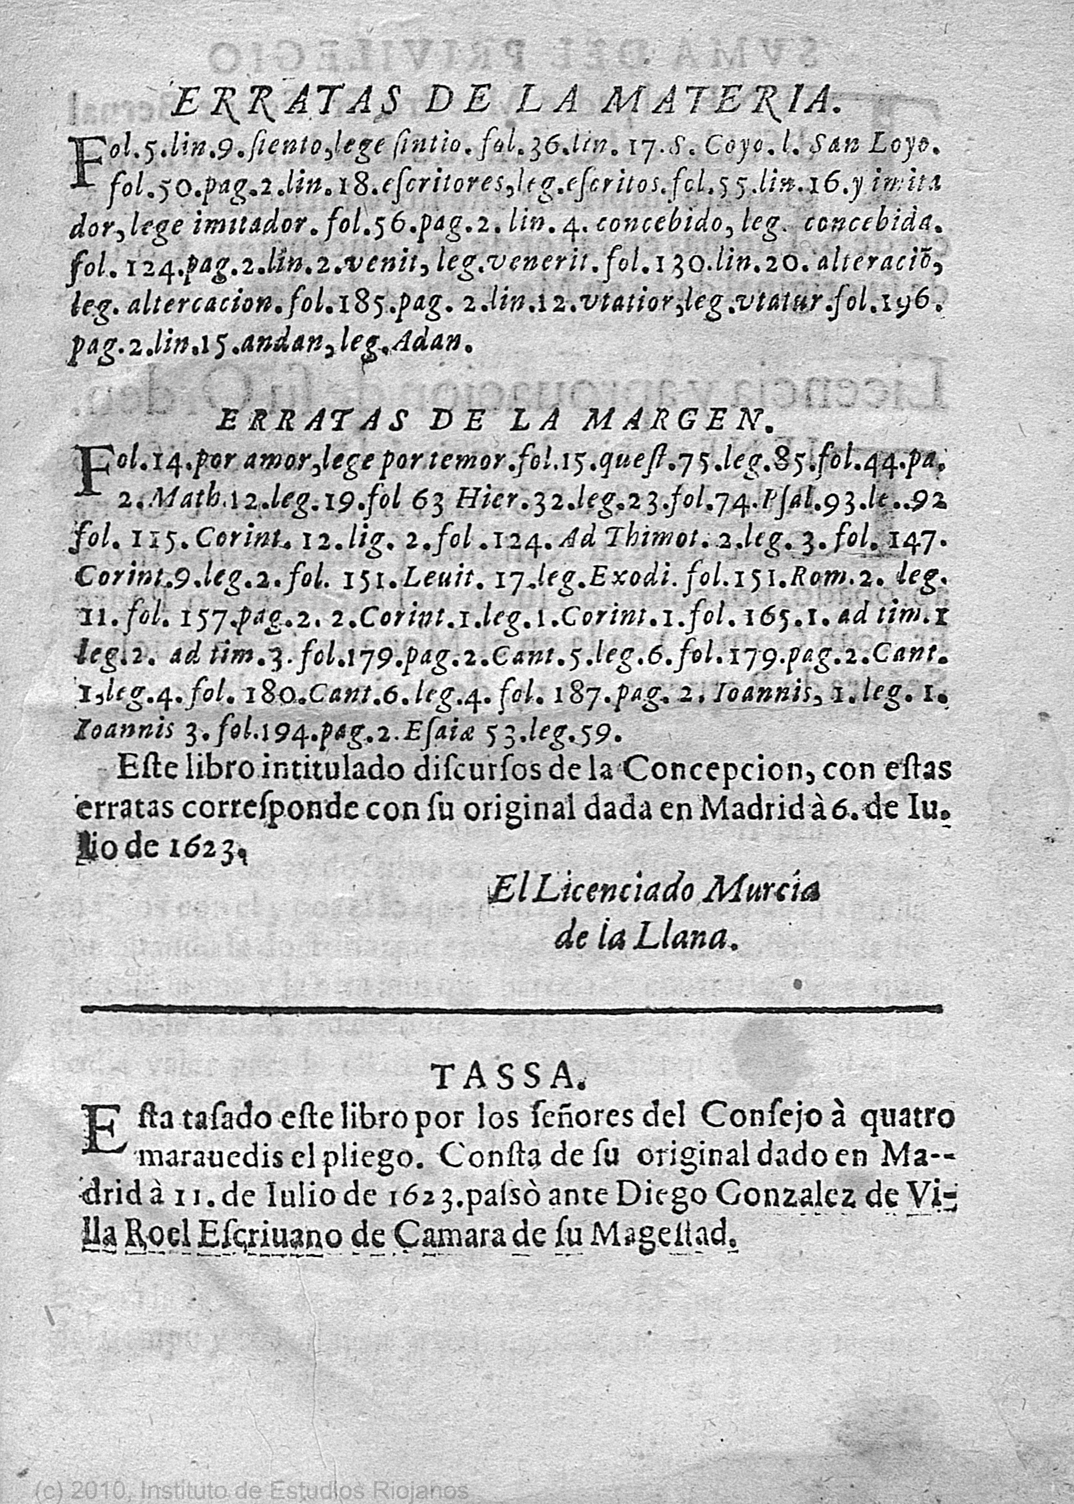 ERRATAS DE LA MATERIA.
Fol.5.lin.9.ſiento,lege ſintio. fol.36.lin. 17.S. Coyo.l. San Loyo.
fol.50.pag.2.lin.18.eſcritores,leg.eſcritos.fol.55.lin.16.y imita
dor,lege imitador. fol.56.pag.2. lin. 4. concebido, leg. concebida.
fol. 124.pag.2.lin.2.venit, leg.venerit.fol.130.lin.20. alteraciõ,
leg. altercacion.fol.185.pag. 2.lin.12.vtatior,leg.vtatur.fol.196.
pag.2.lin.15.andan,leg.Adan.
ERRATAS DE LA MARGEN.
Fol.14.por amor,lege por temor.fol.15.queſt.75.leg.85.fol.44.pa.
2.Math.12.leg.19.fol 63 Hier.32.leg.23.fol.74.Pſal.93.le..92
fol. 115.Corint. 12.lig. 2.fol.124.Ad Thimot. 2.leg. 3.fol. 147.
Corint.9.leg.2.fol. 151.Leuit. 17.leg.Exodi. fol.151.Rom.2. leg.
11.fol. 157.pag.2. 2.Corint.1.leg.1.Corint.1.fol. 165.1. ad tim.1
leg.2. ad tim.3.fol.179.pag.2.Cant.5.leg.6.fol.179.pag.2.Cant.
1,leg.4.fol. 180.Cant.6.leg.4.fol. 187.pag. 2. Ioannis, 1.leg. 1.
Ioannis 3.fol.194.pag.2.Eſaiæ 53.leg.59.
Eſte libro intitulado diſcurſos de la Concepcion, con eſtas
erratas correſponde con ſu original dada en Madrid à 6. de Iu.
lio de 1623.
El Licenciado Murcia
de la Llana.
TASSA.
Eſta taſado eſte libro por los ſeñores del Conſejo à quatro
marauedis el pliego. Conſta de ſu original dado en Ma--
drid à 11. de Iulio de 1623.paſsò ante Diego Gonzalez de Vi-
lla Roel Eſcriuano de Camara de ſu Mageſtad.
(c) 2010, Instituto de Estudios Riojanos